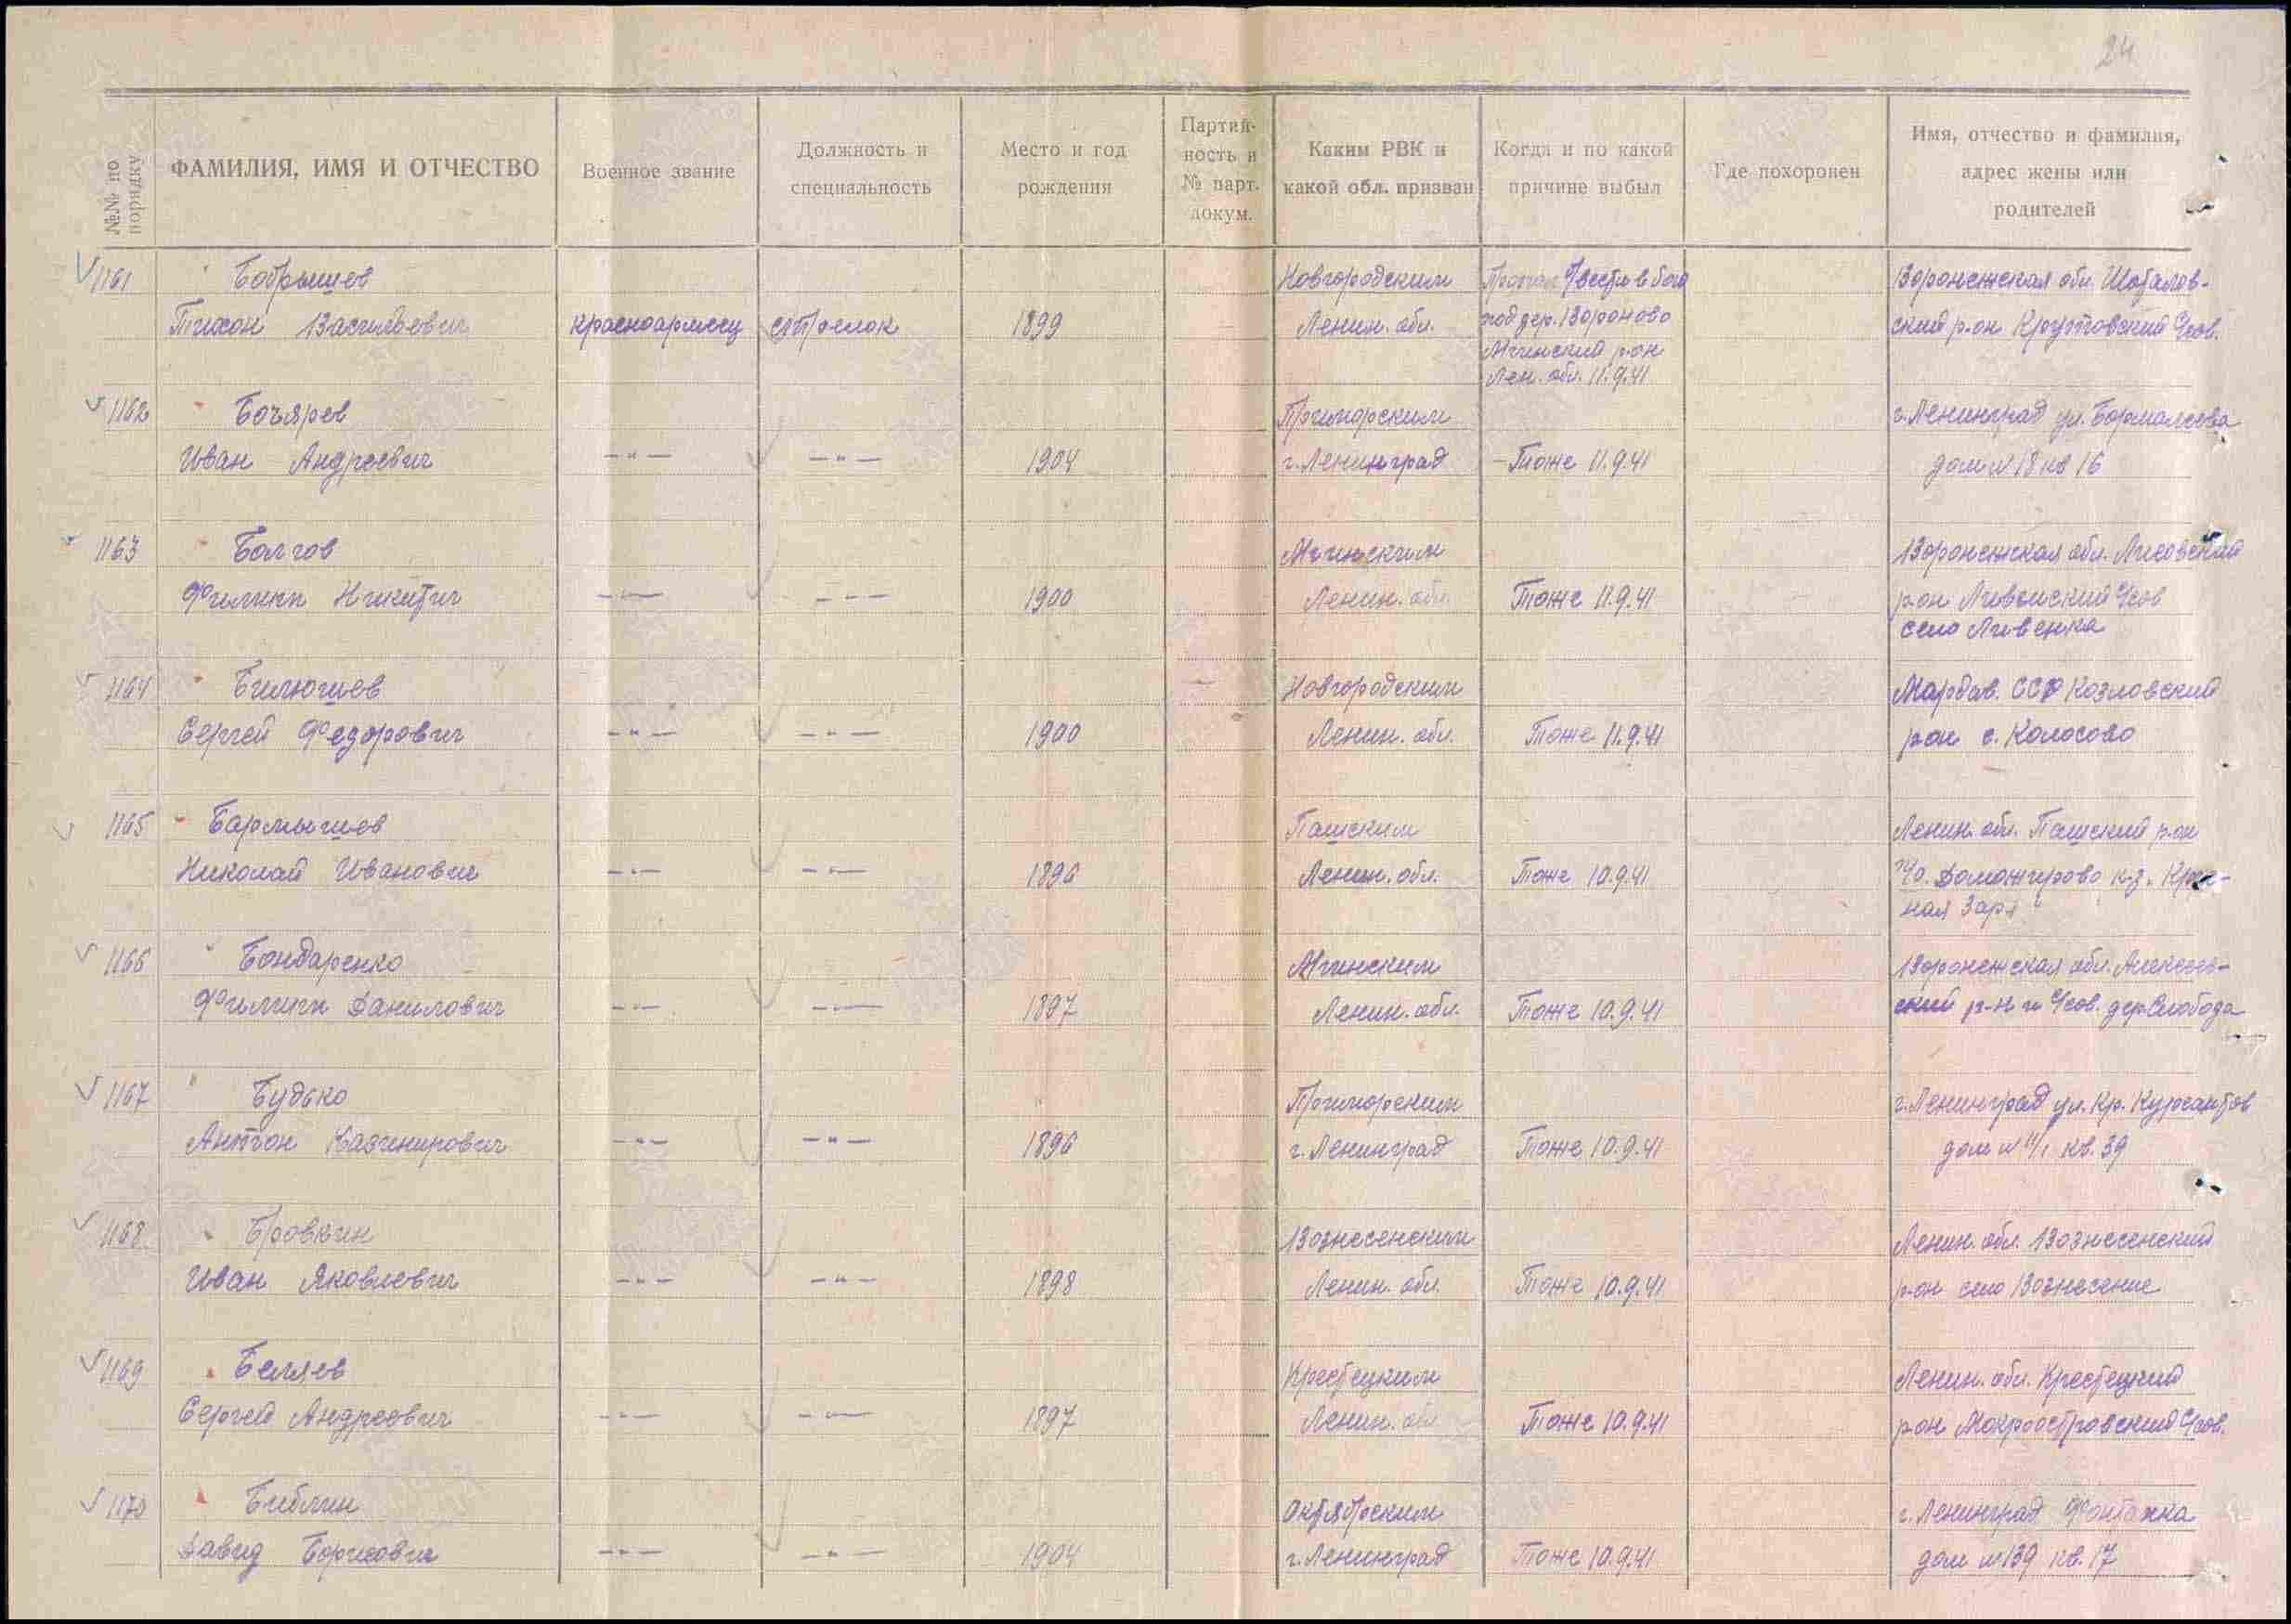 24
№№ по порядку
ФАМИЛИЯ, ИМЯ И ОТЧЕСТВО
Военное звание
Должность и специальность
Место и год рождения
Партийность и № парт. докум.
Каким РВК и какой обл. призван
Когда и по какой причине выбыл
Где похоронен
Имя, отчество и фамилия, адрес жены или родителей
1161 Бобрышев Новгородским Пропал б/вести в бою Воронежская обл. Шаталов-
Тихон Васильевич красноармеец стрелок 1899 Ленин. обл. под дер. Вороново ский р-он Крутовский с/сов.
Мгинский р-он
Лен. обл. 11.9.41
1162 Бочяров Приморским г. Ленинград ул. Бармалеева
Иван Андреевич —"— —"— 1904 г. Ленинград —Тоже 11.9.41 дом № 18 кв 16
1163 Болгов Мгинским Воронежская обл.
Филипп Никитич —"— —"— 1900 Ленин. обл. Тоже 11.9.41 р-он Ливенский с/сов
село Ливенка
1164 Билюшев Новгородским Мордов. ССР Козловский
Сергей Федорович —"— —"— 1900 Ленин. обл. Тоже 11.9.41 р-он с. Колосово
1165 Бармышев Пашским Ленин. обл. Пашский р-он
Николай Иванович —"— —"— 1896 Ленин. обл. Тоже 10.9.41 п/о. Доможирово к-з. Крас-
ная Заря
1166 Бондаренко Мгинским Воронежская обл. Алексеев-
Филипп Данилович —"— —"— 1897 Ленин. обл. Тоже 10.9.41 ский р-н и с/сов. дер. Слобода
1167 " Будько Приморским г. Ленинград ул. Кр. Курсантов
Антон Казимирович —"— —"— 1896 г. Ленинград Тоже 10.9.41 дом № 11/1 кв. 39
1168 Бровкин Вознесенским Ленин. обл. Вознесенский
Иван Яковлевич —"— —"— 1898 Ленин. обл. Тоже 10.9.41 р-он село Вознесение
1169 Беляев Крестецким Ленин. обл. Крестецкий
Сергей Андреевич —"— —"— 1897 Ленин. обл Тоже 10.9.41 р-он Мокроостровский с/сов.
1170 Библин Октябрьским г. Ленинград Фонтанка
Давид Борисович —"— —"— 1904 г. Ленинград Тоже 10.9.41 дом № 139 кв. 17